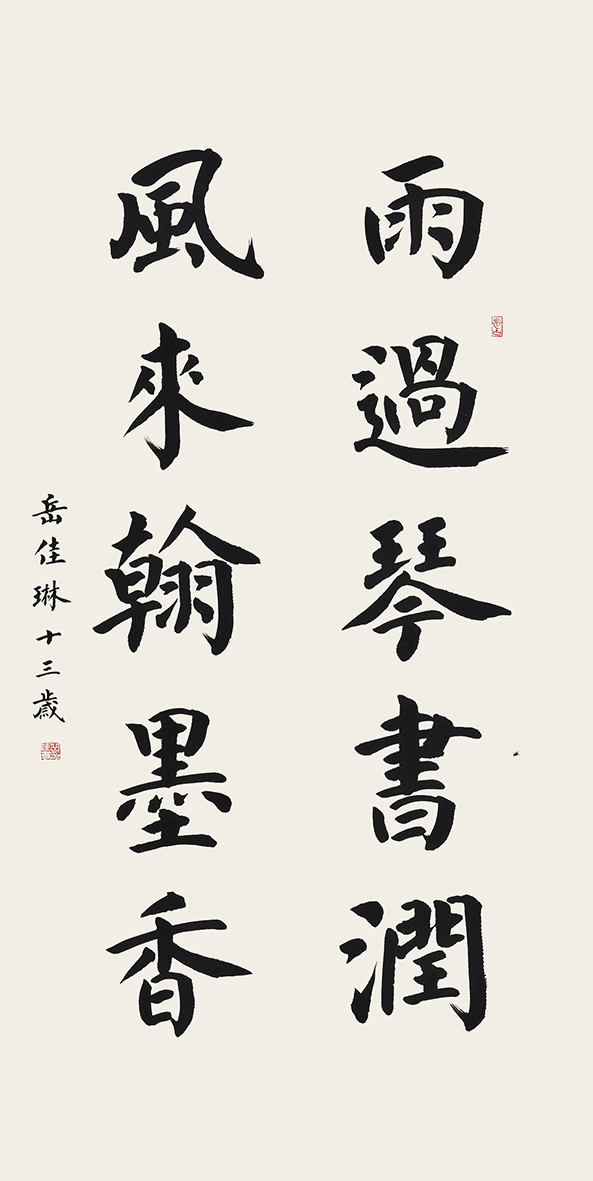 雨過琴書潤
風來翰墨香
岳佳琳十三歲